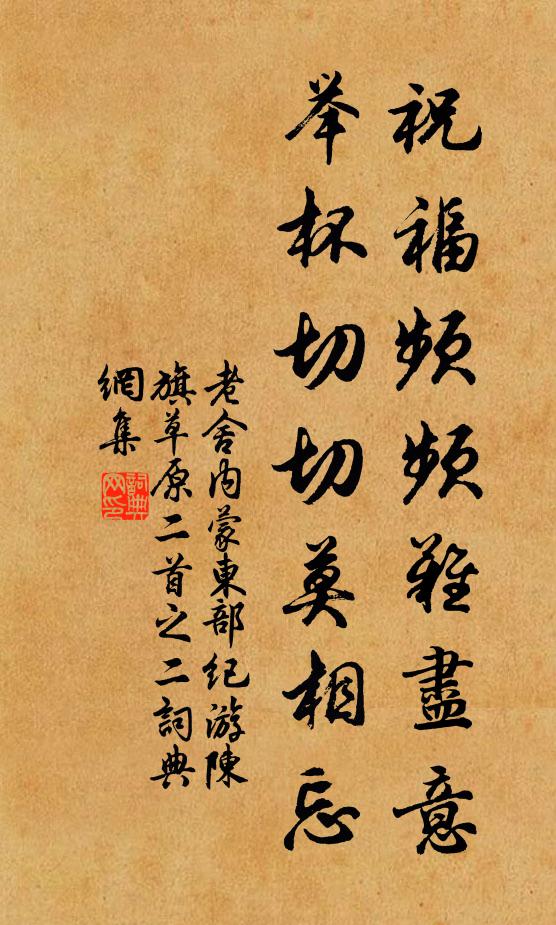 祝福频频難盡意
举杯切切莫相忘
老舍内蒙東部纪游陳
旗草原二首之二詞典
網集
詞典网印